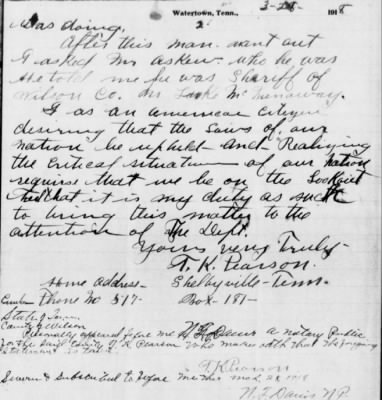 Watertown, Tenn., 3-25 1918
2
was doing.
After this man went out
I asked Mr Askew who he was
He told me he was Sheriff of
Wilson Co. Mr
I as an American Citizen
desiring that the Laws of our
nation be upheld and Realizing
the critical situation of our nation
requires that we be on the Lookout
that it is my duty as such
to bring this matter to the
attention of The Dept.
Yours very Truly
T. K. Pearson.
Home Address- Shelbyville-Tenn.
Phone No 317- Box-181-
State Tenn
County Wilson
Personally appeared before me W F Davis a notary Public
for the said County T K Pearson who makes oath that the foregoing
statement is true.
T K Pearson
Sworn & Subscribed to before me this 1918
W. F. Davis N.P.